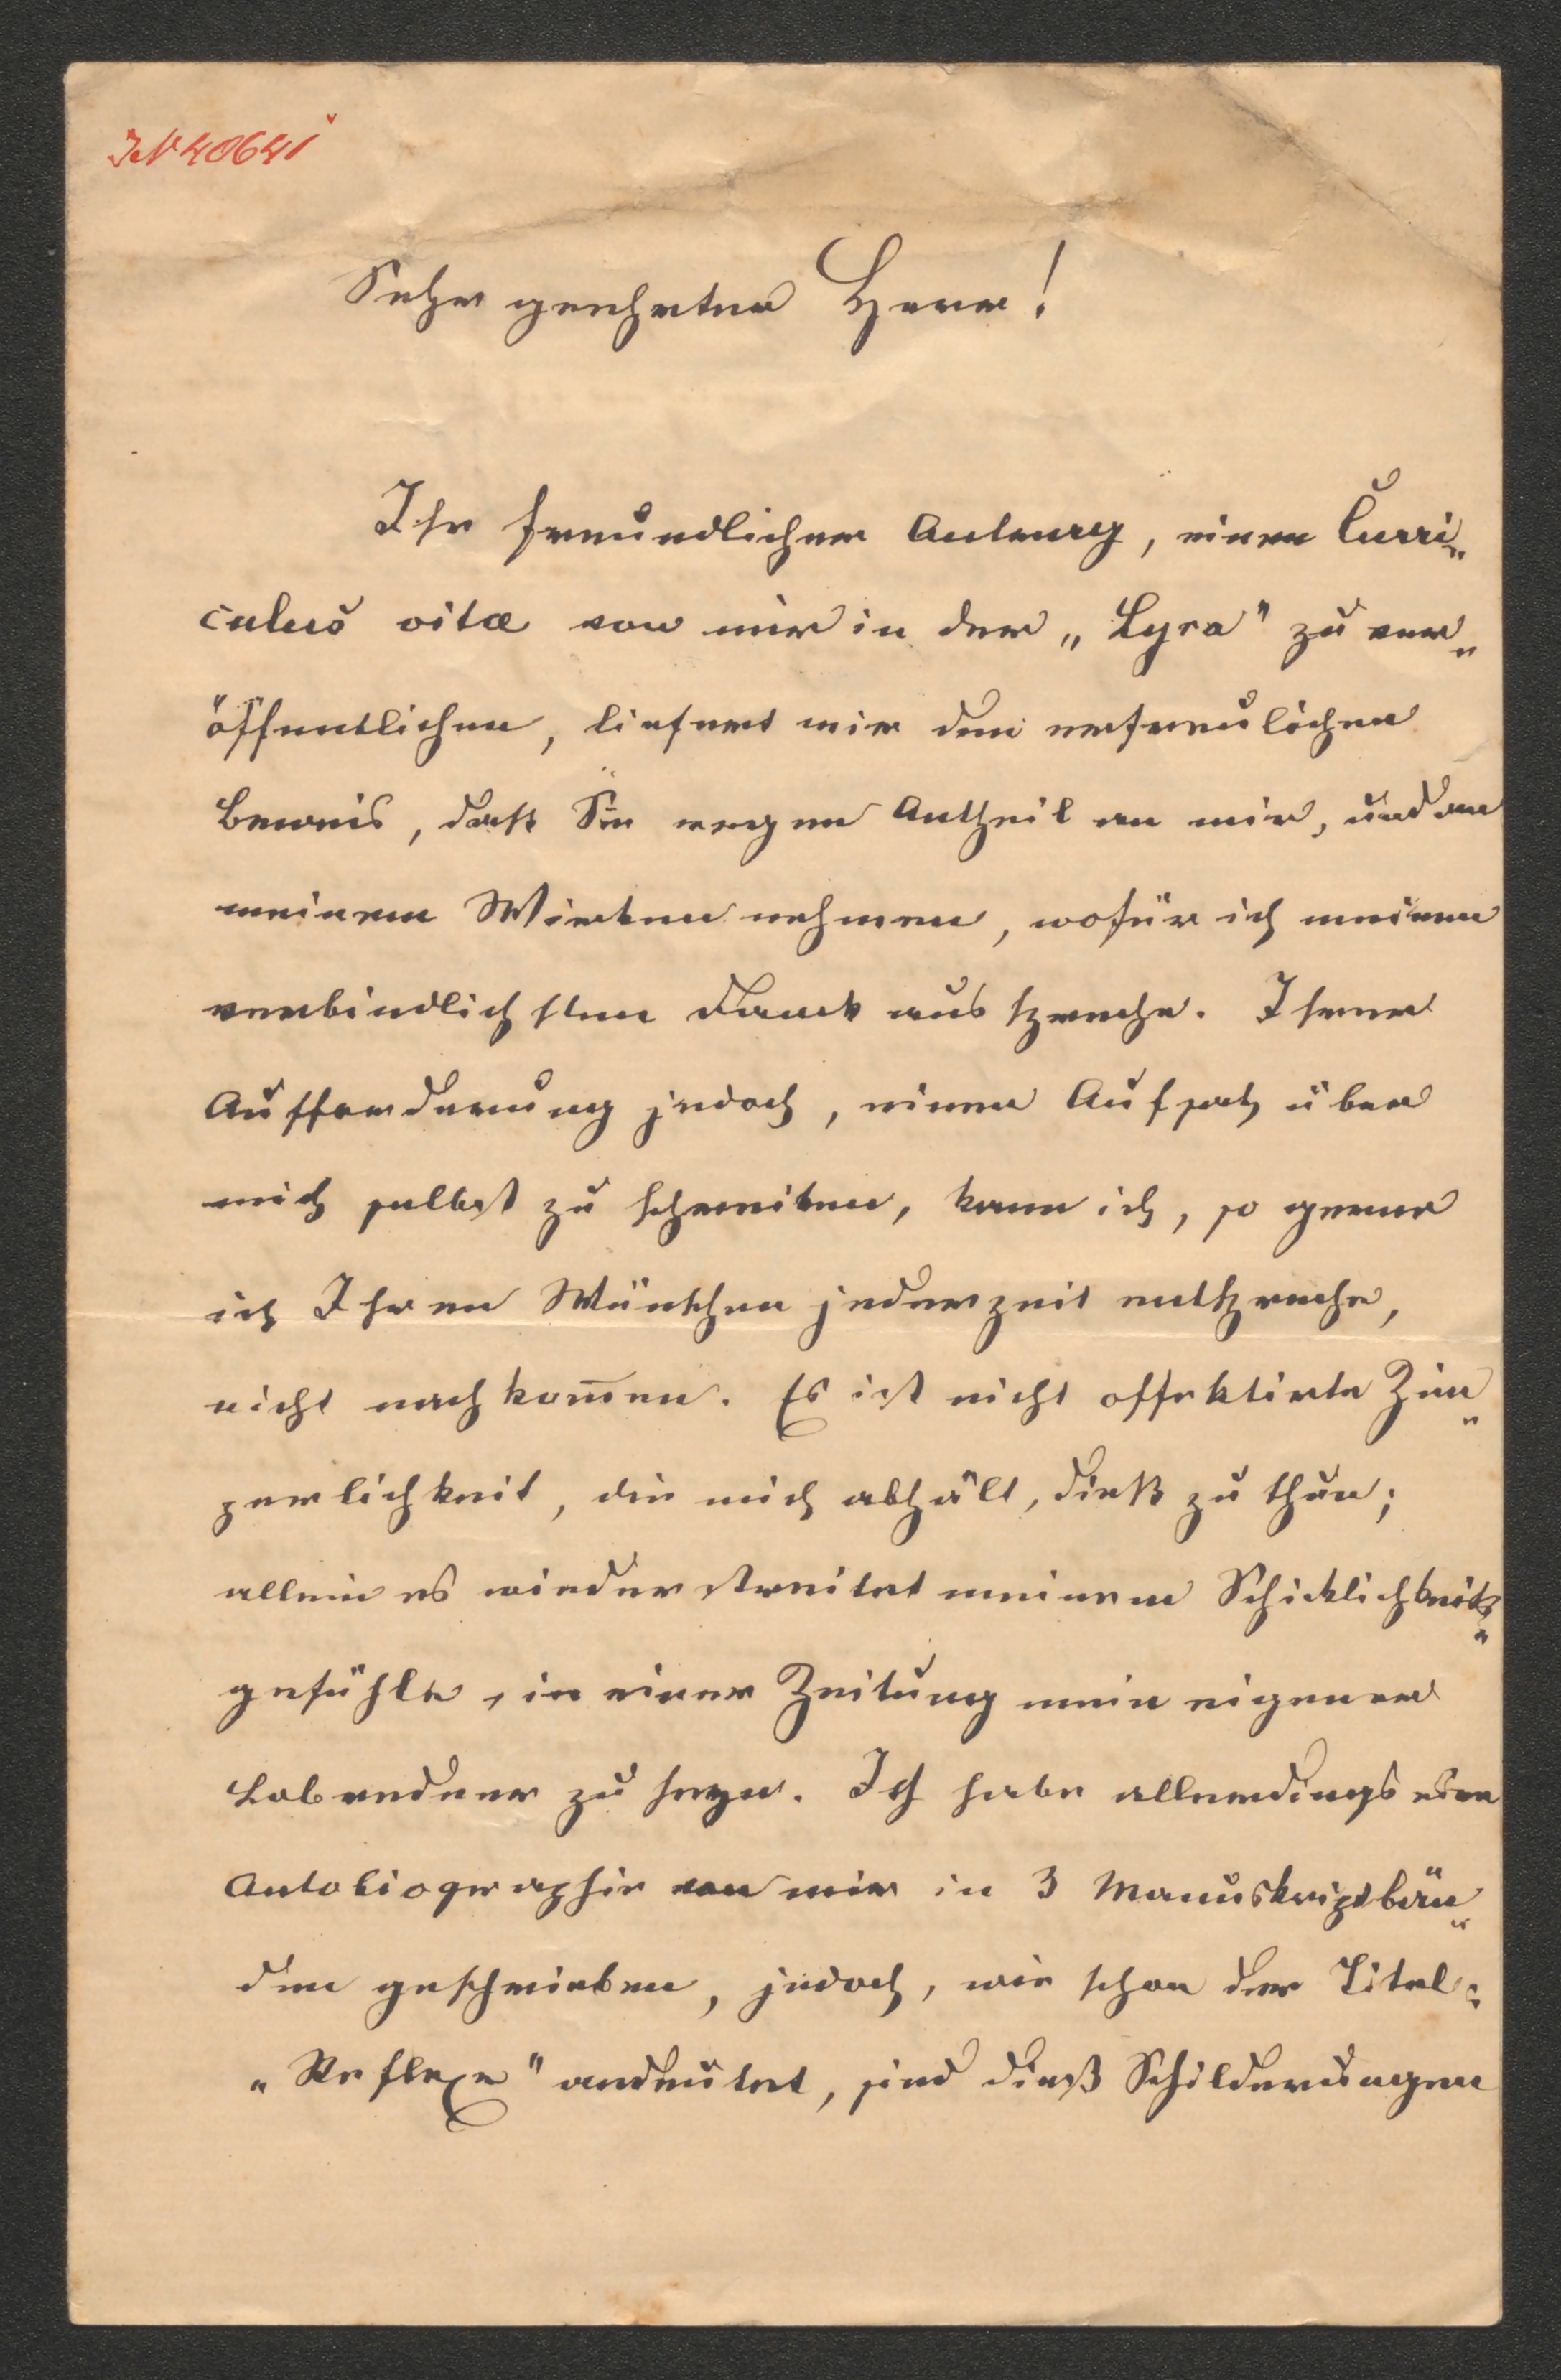 IN 40641
Sehr geehrter Herr!
Ihr freundlicher Antrag, einen Curri„
culus vitæ von mir in der „Lyra" zu ver„
öffentlichen, liefert mir den erfreulichen
Beweis, daß Sie regen Antheil an mir, und an
meinem Wirken nehmen, wofür ich meinen
verbindlichsten Dank ausspreche. Ihrer
Aufforderung jedoch, einen Aufsatz über
mich selbst zu schreiben, kann ich, so gerne
ich Ihren Wünschen jederzeit entspreche,
nicht nachkom̅en. Es ist nicht affektirte Zim„
perlichkeit, die mich abhält, dieß zu thun;
allein es wiederstreitet meinem Schicklichkeits„
gefühle, in einer Zeitung mein eigener
Lobredner zu seyn. Ich habe allerdings eine
Autobiographie von mir in 3 Manuskriptbän„
den geschrieben, jedoch, wie schon der Titel:
„Reflexe" andeutet, sind dieß Schilderungen